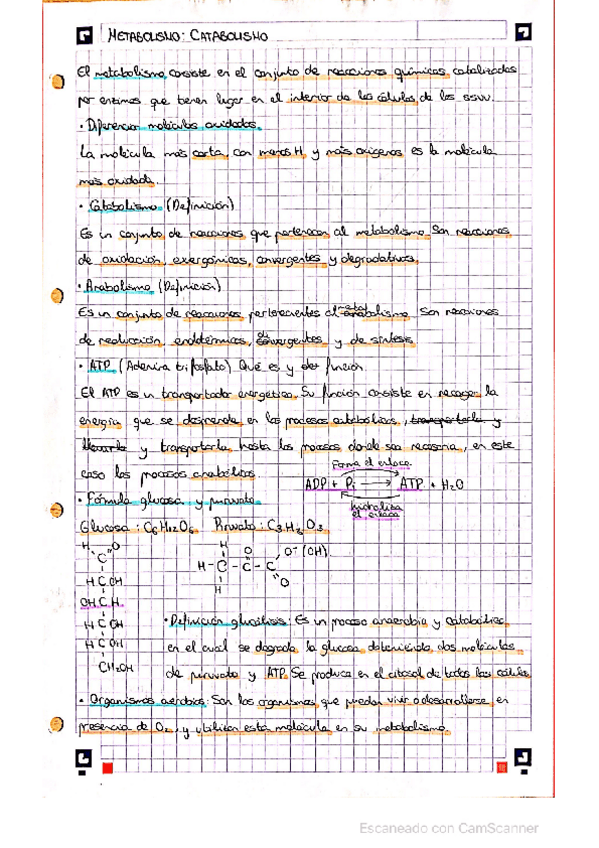 METABOLISMO: CATABOLISMO
El metabolismo consiste en el conjunto de reacciones químicas catalizadas
por enzimas que tienen lugar en el interior de las células de los ssvv.
· Diferencia moléculas oxidadas.
La molécula más corta, con menos H y más oxígenos es la molécula
más oxidada.
· Catabolismo (Definición)
Es un conjunto de reacciones que pertenecen al metabolismo. Son reacciones
de oxidación, exergónicas, convergentes y degradativas.
· Anabolismo (Definición)
Es un conjunto de reacciones pertenecientes al metabolismo. Son reacciones
de reducción, endotérmicas, divergentes y de síntesis.
· ATP (Adenina trifosfato) Qué es y función
El ATP es un transportador energético. Su función consiste en recoger la
energía que se desprende en los procesos catabólicos, transportarla y
llevarla y transportarla hasta los procesos donde sea necesaria, en este
caso los procesos anabólicos.
Forma el enlace
ADP + Pi → ATP + H2O
hidroliza
el enlace
· Fórmula glucosa y piruvato
Glucosa: C6H12O6 Piruvato: C3H3O3
H O
C
H C OH
OH C H
H C OH
H C OH
CH2OH
H O O⁻(OH)
H - C - C - C
H O
· Definición glucólisis: Es un proceso anaerobio y catabólico
en el cual se degrada la glucosa obteniendo dos moléculas
de piruvato y ATP. Se produce en el citosol de todas las células
· Organismos aerobios: Son los organismos que pueden vivir o desarrollarse en
presencia de O2, y utilizan esta molécula en su metabolismo.
Escaneado con CamScanner